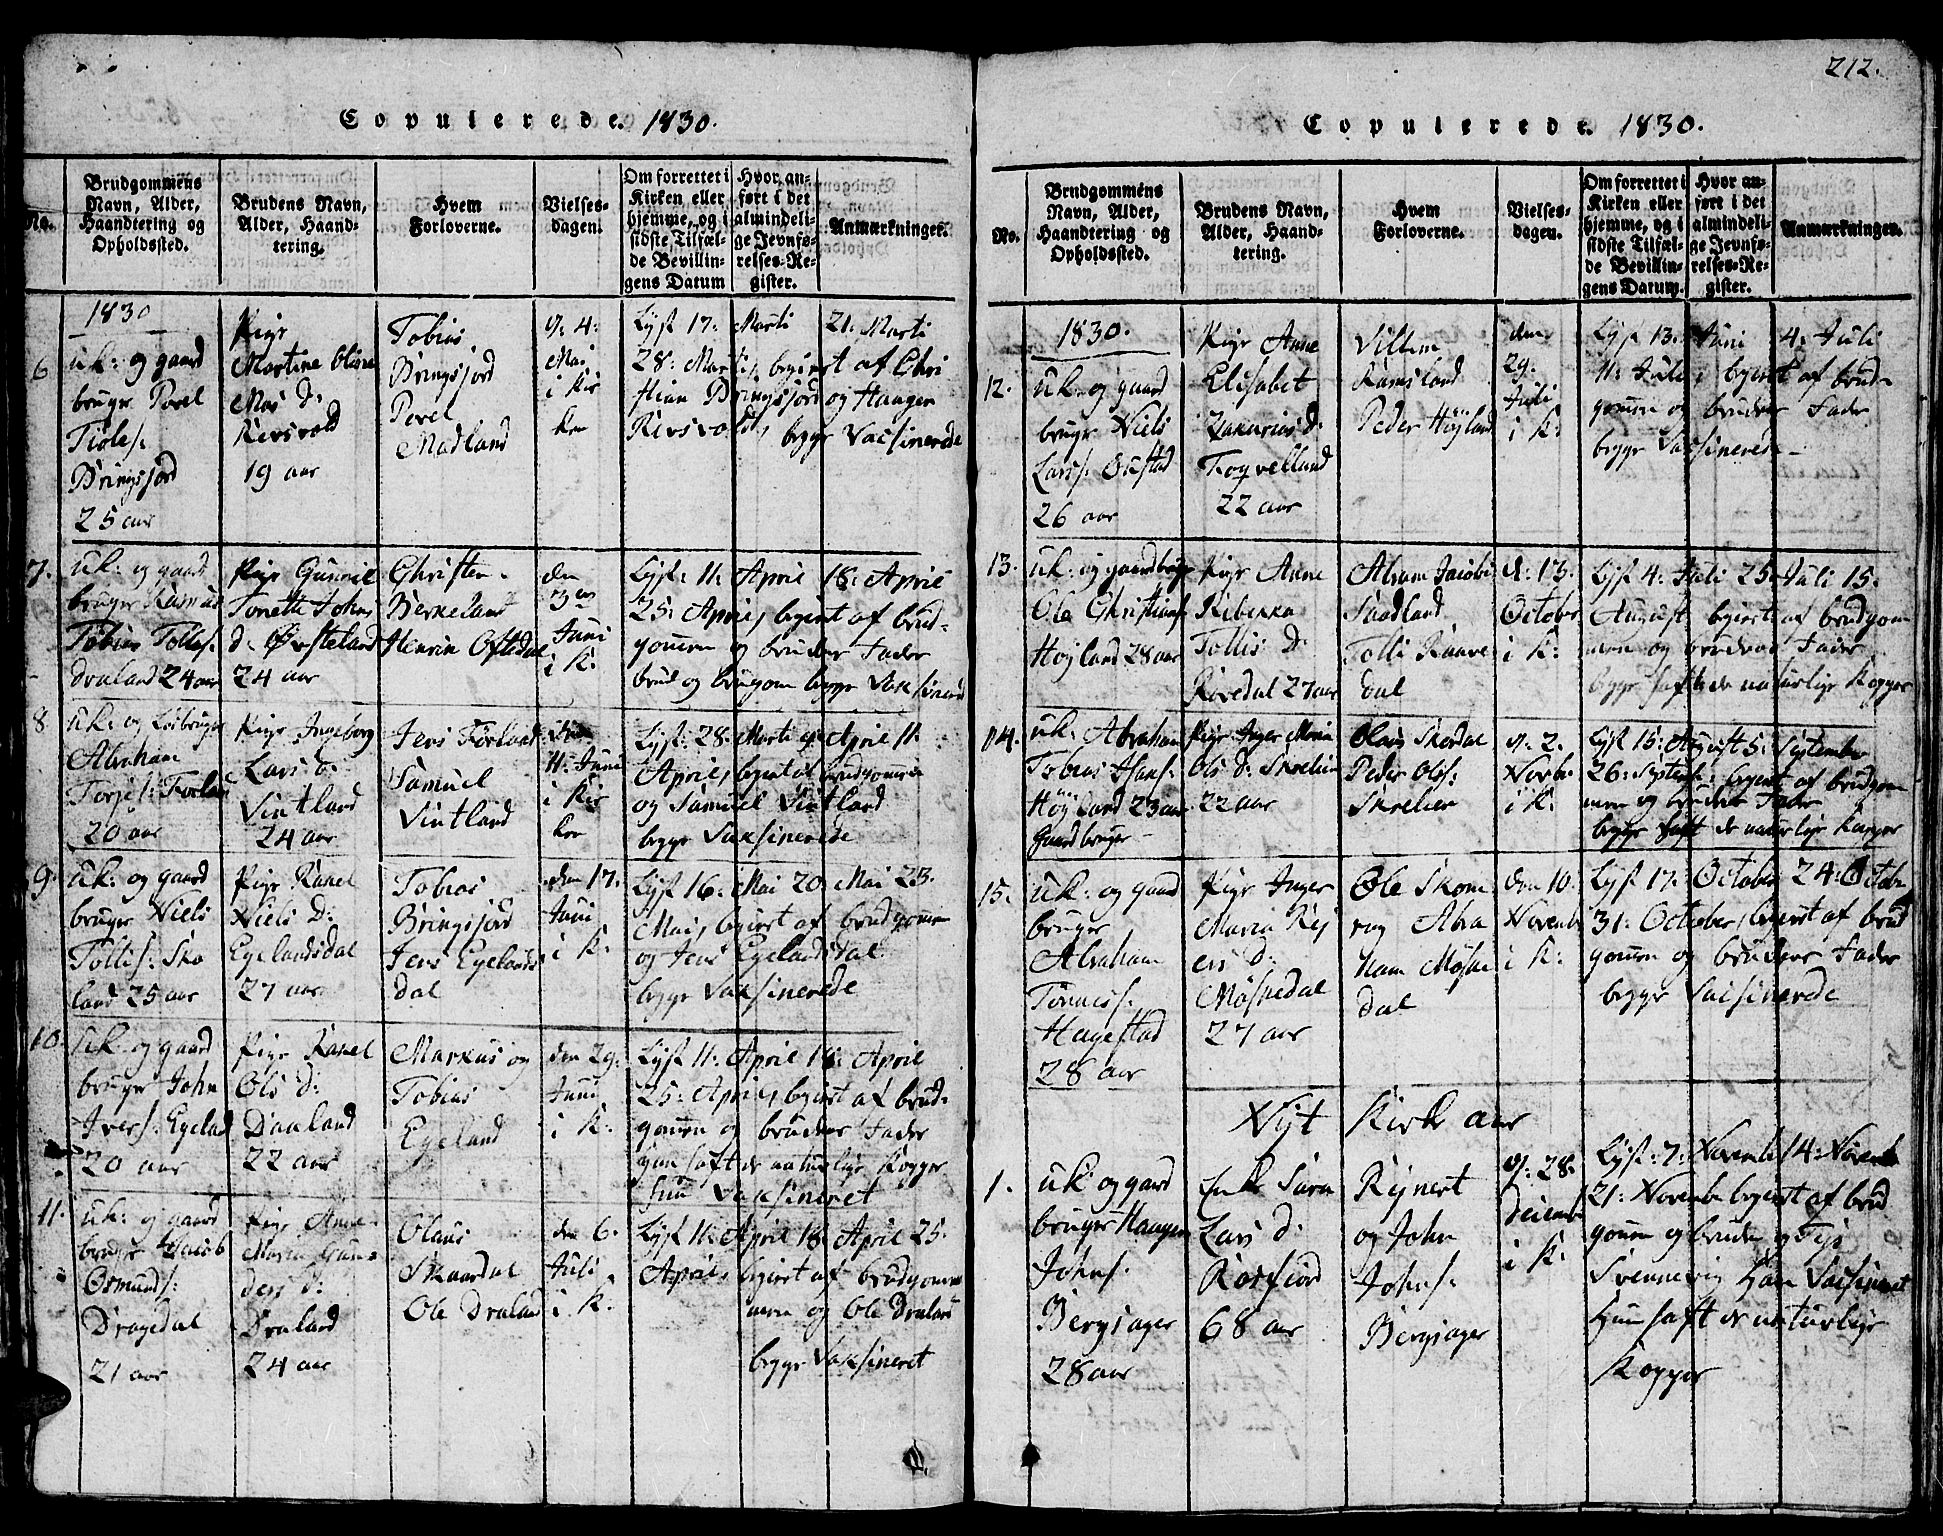 Copulerede. 1830.
No.
Brudgommens
Navn, Alder,
Haandtering og
Opholdssted.
Brudens Navn,
Alder, Haand-
tering.
Hvem
Forloverne.
Vielses-
dagen.
Om forrettet i
Kirken eller
hjemme, og i
sidste Tilfæl-
de Bevillin-
gens Datum
Hvor an-
ført i det
almindeli-
ge Jevnfø-
relses-Re-
gister.
Anmærkninger.
1830
6
uk: og gaard
bruger Povel
Tioles:
Bringsjord
25 aar
Pige
Martine Olisne
Mos D:
Revsvold
19 aar
Tobias
Bringsjord
Povel
Madland
d: 4:
Mai
i Kir
ken
Lyst 17: Marti 21: Marti
28: Marti, begiert af Chri
stian Bringsjord og Haagen
Revsvold, begge Vacsinerede
7.
uk: og gaard
bruger Rasmus
Tobias Tolles:
Draland 24 aar
Pige Gunnil
Tonette Johns
d: Øvsteland
24 aar
Christen
Berkeland
Henrik Oftedal
den
3en
Juni
i K:
Lyst: 11: April 18: April
25: April, begiert af brud-
gomen og brudens Fader
brud og brugom begge Vaksinered
8
uk: og Løsbruger
Abraham
Torjes: Forland
20 aar
Pige Ingeborg
Lars D:
Vintland
24 aar
Jens Forland
Samuel
Vintland
den
11: Juni
i Kir
ken
Lyst: 28: Marti og April 11:
April, begiert af brudgomen
og Samuel Vintland
begge Vaksinerede
9.
uk: og gaard
bruger Niels
Tollis: Sko
land 25 aar
Pige Ranel
Niels D:
Egelandsdal
27 aar
Tobias
Bringsjord
Jens Egelands
dal
den 17:
Juni
i K:
Lyst 16: Mai 20 Mai 23.
Mai, begiert af brudgomen
og Jens Egelandsdal
begge Vaksinerede
10.
uk: og gaard
bruger John
Ivers: Egeland
20 aar
Pige Ranel
Ols D:
Daaland
22 aar
Markus og
Tobias
Egeland
den 29:
Juni
i K:
Lyst 11: April 18: April
25: April, begiert af brud-
gomen og brudens Fader
han haft de naturlige Kopper
hun Vaksineret
11.
uk: og gaard
bruger Jacob
Osmunds:
Dragedal
21 aar
Pige Anne
Maria Gun-
ders D:
Draland
24 aar
Olaus
Skaardal
Ole Draland
den 6:
Juli
i K:
Lyst 11: April 18 April 25:
April, begiert af brudgomme
men og Ole Draland
begge Vaksineret
212.
Copulerede. 1830.
No.
Brudgommens
Navn, Alder,
Haandtering og
Opholdssted.
Brudens Navn,
Alder, Haand-
tering.
Hvem
Forloverne.
Vielses-
dagen.
Om forrettet i
Kirken eller
hjemme, og i
sidste Tilfæl-
de Bevillin-
gens Datum.
Hvor an-
ført i det
almindeli-
ge Jevnfø-
relses-Re-
gister.
Anmærkninger.
1830.
12.
uk: og gaard
bruger Niels
Lars: Oustad
26 aar
Pige Anne
Elisabet
Zakarias d:
Foqvelland
22 aar
Villem
Ramsland
Peder Höyland
den
29.
Juli
i K:
Lyst 13. Juni 4: Juli
11: Juli, begiert af brud-
gomen og brudens Fader
begge Vaksinerede
13.
uk: og gaardbruger
Ole Christians:
Højland 28 aar
Pige Anne
Rebekka
Tollis D:
Røvedal 27 aar
Abram Jacobs:
Saadland
Tolli Raave
dal
d: 13:
October
i K:
Lyst 4: Juli 25: Juli 15:
August begiert af brudgom
men og brudens Fader
begge haft de naturlige Kopper
14.
uk: Abraham
Tobias Hans:
Höyland 23 aar
Gaardbruger
Pige Inger Maria
Ols D: Skrelien
22 aar
Olaus Skordal
Peder Ols:
Skrelien
d: 2.
Novbr
i K:
Lyst 15: August 5: September
26: Septem: begiert af brudgom
men og brudens Fader
begge haft de naturlige Kopper
15.
uk: og gaard
bruger
Abraham
Tønnes:
Hagestad
28 aar
Pige Inger
Maria Rej
ers D:
Møskedal
27 aar
Ole Skom
rag Abra
ham Møske
dal
den 10.
Novemb
i K:
Lyst 17: October 24: Octobr
31: October, begiert af brud
gomen og brudens Fader
begge Vacsinerede
Nyt Kirk aar
1.
uk: og gaard
bruger Haagen
Johns:
Bergsager
28 aar
Enk Sara
Lars D:
Rosfiord
68 aar
Rejnert
og John
Johns:
Bergsager
d: 28:
Deiemb
i K:
Lyst: 7: Novemb 14: Novemb
21: Novembr begiert af brud
gomen og bruden og
Svennevig Han Vacsineret
Hun haft de naturlige
Kopper